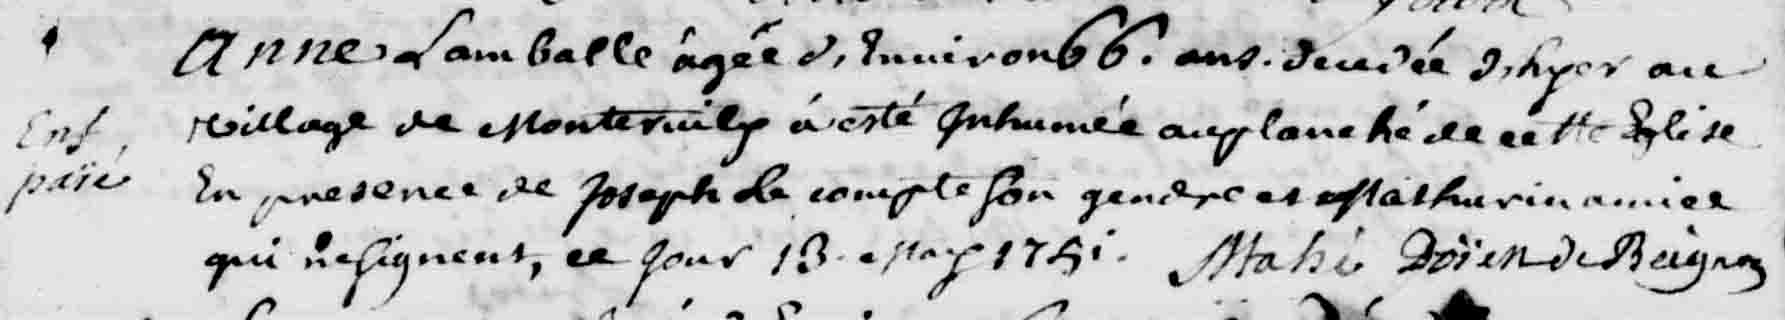 Anne Lamballe âgée d'Environ 66. ans. decedée d'hyer au
Enf. village de Monterüily à esté Inhumée auplanché de cette Eglise
païé En presence de Joseph Le compte son gendre et Mathurin amice
qui ne signent, ce jour 13. May 1751. Mahé Doïen de Beignon